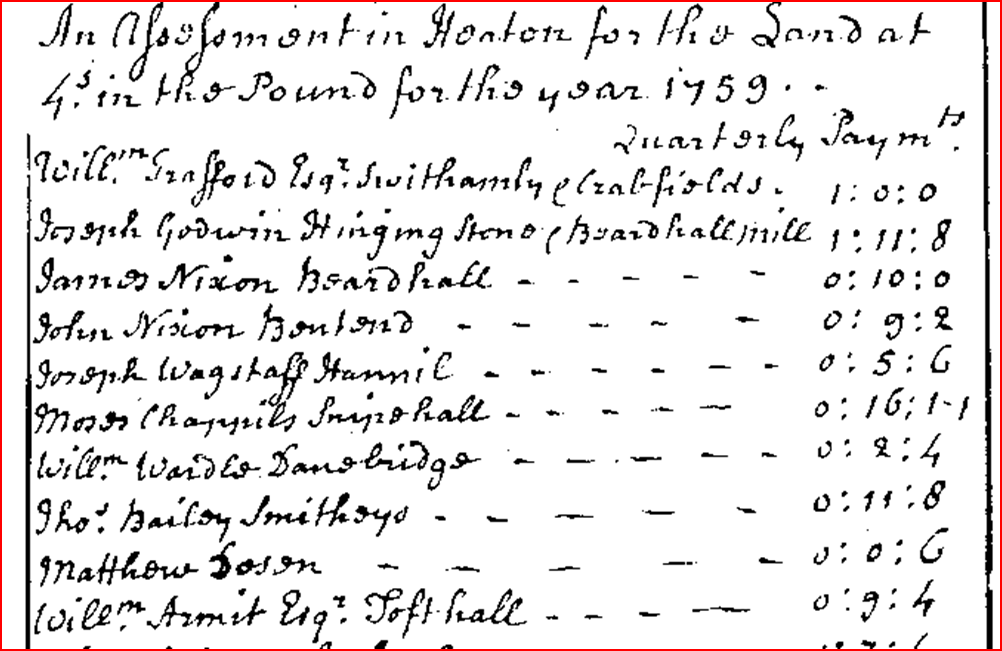 An Assessment in Heaton for the Land at
4s. in the Pound for the year 1759 . .
Quarterly Paymts.
Willm. Trafford Esqr. Swithamly & Crabfields . 1 : 0 : 0
Joseph Godwin Hinging Stone & Beardhall mill 1 : 11 : 8
James Nixon Beardhall - - - - 0 : 10 : 0
John Nixon Bentend - - - - - 0 : 9 : 2
Joseph Wagstaff Hannil - - - - - - 0 : 5 : 6
Moses Chappils Snipehall - - - - - 0 : 16 : 1-1
Willm. Wardle Danebridge - - - - - 0 : 2 : 4
Thos. Bailey Smitheys - - - - - 0 : 11 : 8
Matthew Dosen - - - - - 0 : 0 : 6
Willm. Armit Esqr. Tofthall - - - - 0 : 9 : 4